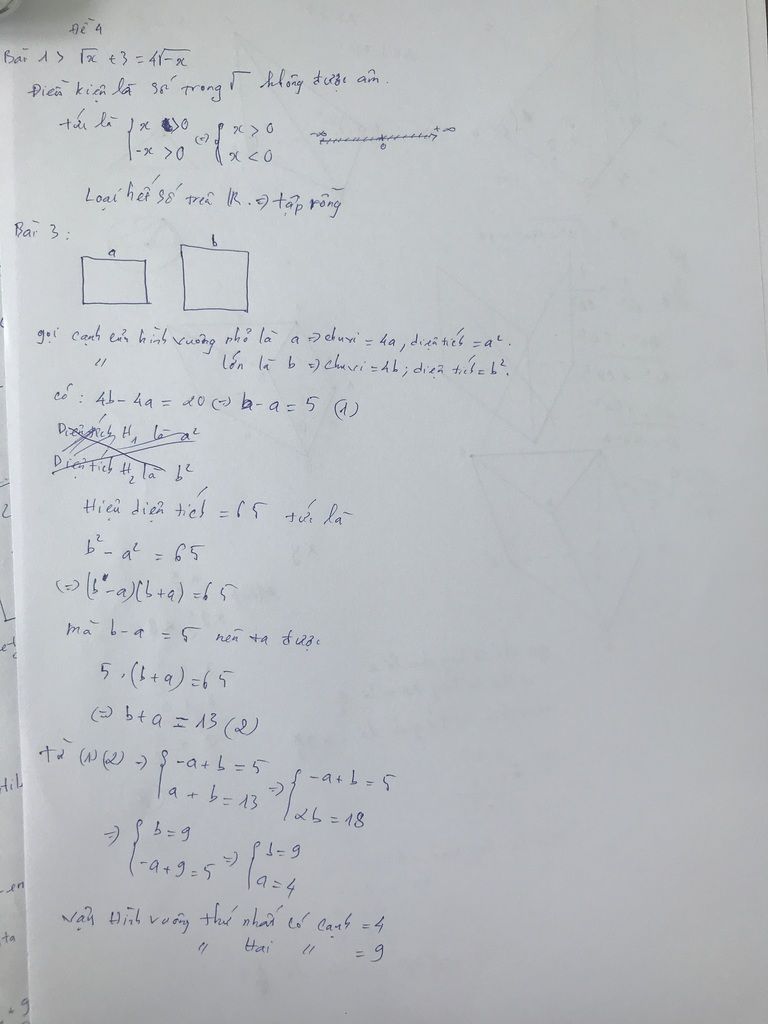 Đề 4
Bài 1> √x + 3 = 4√-x
Điều kiện là số trong √ không được âm.
tức là { x >0 ; -x >0 (=) { x > 0 ; x < 0 -∞ 0 +∞
Loại hết số trên R. => tập rỗng
Bài 3 :
a b
gọi cạnh của hình vuông nhỏ là a => chu vi = 4a, diện tích = a².
" lớn là b => chu vi = 4b; diện tích = b².
có : 4b - 4a = 20 (=) b - a = 5 (1)
Diện tích H1 là a²
Diện tích H2 là b²
Hiệu diện tích = 65 tức là
b² - a² = 65
(=) (b - a)(b + a) = 65
mà b - a = 5 nên ta được
5 . (b + a) = 65
(=) b + a = 13 (2)
từ (1) (2) => { -a + b = 5 ; a + b = 13 => { -a + b = 5 ; 2b = 18
=> { b = 9 ; -a + 9 = 5 => { b = 9 ; a = 4
Vậy Hình vuông thứ nhất có cạnh = 4
" Hai " = 9